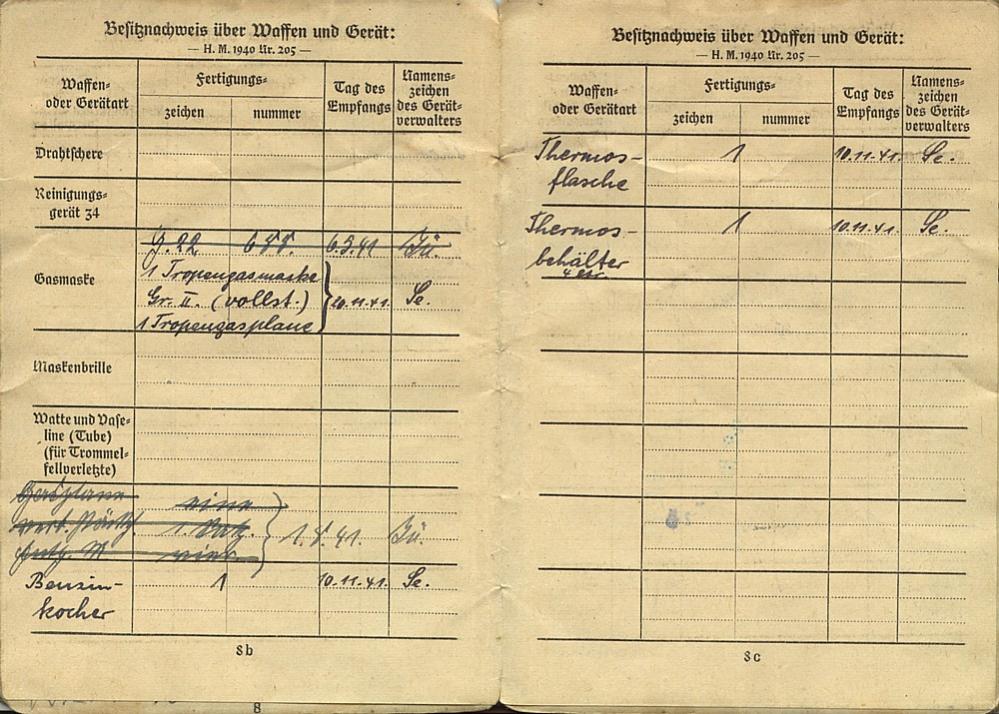 Besitznachweis über Waffen und Gerät:
— H. M. 1940 Nr. 205 —
Waffen-
oder Gerätart
Fertigungs-
zeichen
nummer
Tag des
Empfangs
Namens-
zeichen
des Gerät-
verwalters
Drahtschere
Reinigungs-
gerät 34
Gasmaske
G. 22 6.3.41 Bü.
1 Tropengasmaske
Gr. II. (vollst.) 10.11.41. Se.
1 Tropengasplane
Maskenbrille
Watte und Vase-
line (Tube)
(für Trommel-
fellverletzte)
Gasplane eine
1. 1.8.41. Bü.
vier
Benzin- 1 10.11.41. Se.
kocher
8b
8
Besitznachweis über Waffen und Gerät:
— H. M. 1940 Nr. 205 —
Waffen-
oder Gerätart
Fertigungs-
zeichen
nummer
Tag des
Empfangs
Namens-
zeichen
des Gerät-
verwalters
Thermos- 1 10.11.41. Se.
flasche
Thermos- 1 10.11.41. Se.
behälter
8c